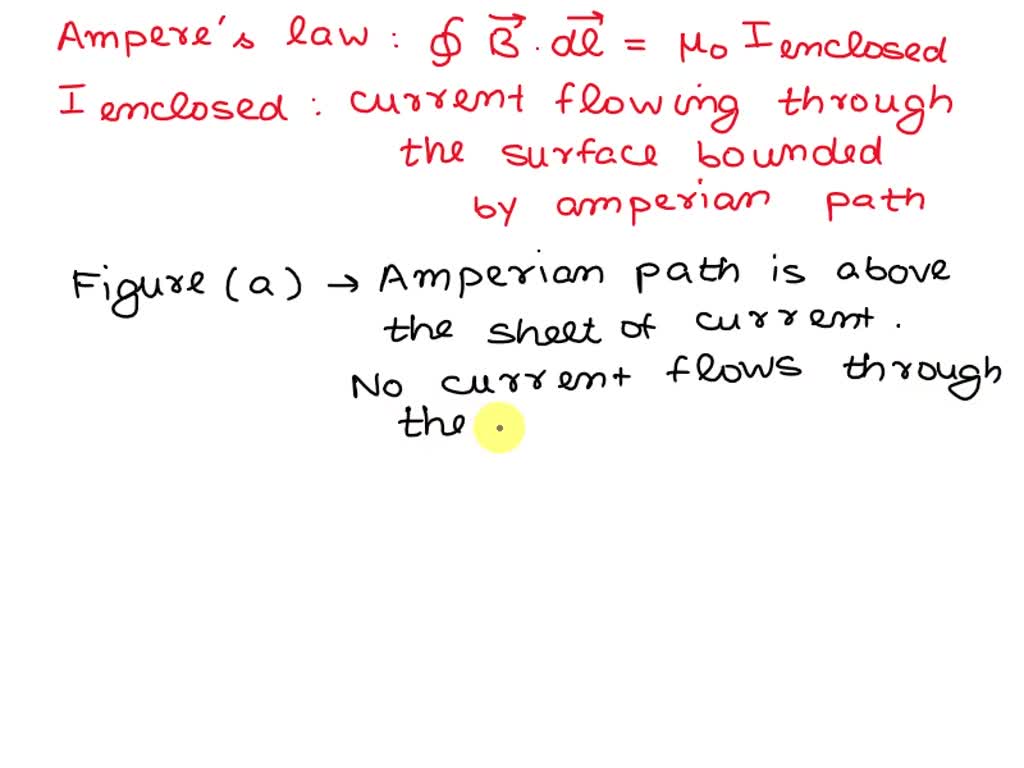 Ampere's law : ∮ B⃗ . dl⃗ = μ₀ I enclosed
I enclosed : current flowing through
the surface bounded
by amperian path
Figure (a) → Amperian path is above
the sheet of current .
No current flows through
the